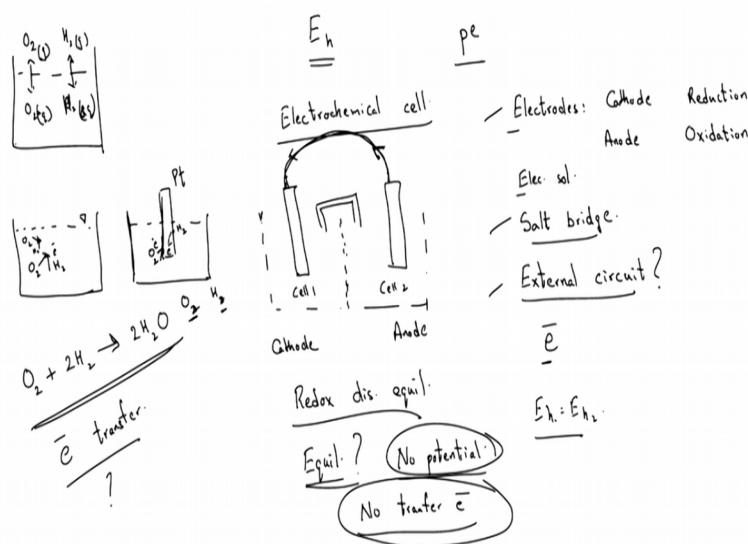 O₂(g) H₂(g)
O₂(g) H₂(g)
Pt
O₂ e̅ H₂
O₂ H₂
O₂ + 2H₂ → 2H₂O O₂ H₂
e̅ transfer.
?
Eₕ
Electrochemical cell.
Cell 1 Cell 2
Cathode Anode
Redox dis. equil.
Equil. ? No potential.
No tranfer e̅
pe
Electrodes: Cathode Reduction
Anode Oxidation
Elec. sol.
Salt bridge.
External circuit ?
e̅
Eₕ₁ = Eₕ₂